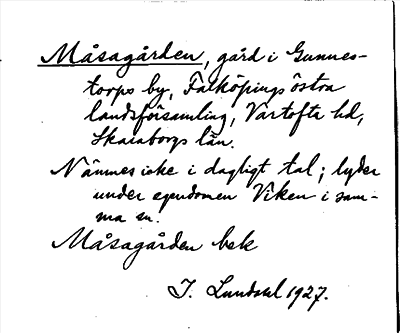 Måsagården, gård i Gunnes-
torps by, Falköpings östra
landsförsamling, Vartofta hd,
Skaraborgs län.
Nämnes icke i dagligt tal; lyder
under egendomen Viken i sam-
ma sn.
Måsagården bek
J. Lundahl 1927.